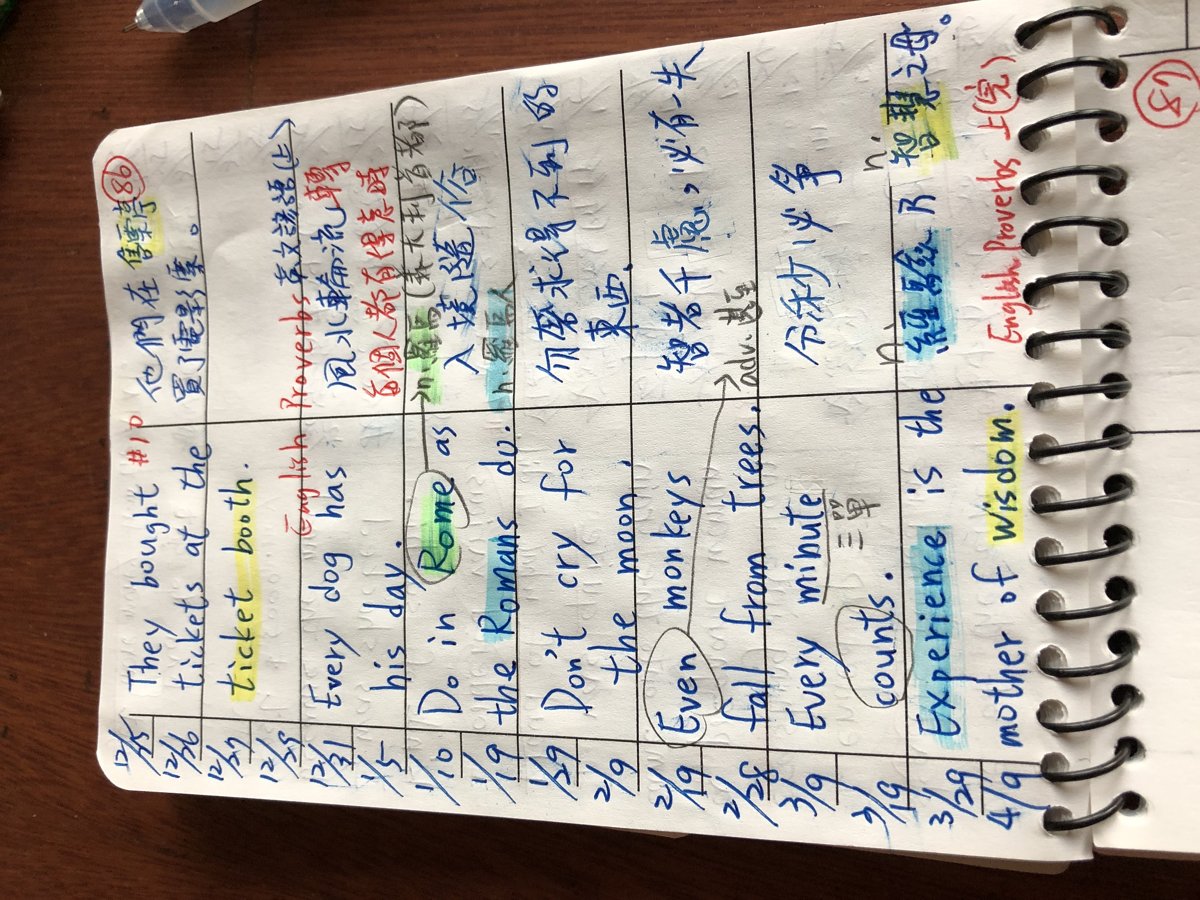 86
12/15
12/26
12/27
12/29
12/31
1/5
1/10
1/19
1/29
2/9
2/19
2/28
3/9
3/19
3/29
4/9
They bought #10
tickets at the
ticket booth.
他們在售票亭
買了電影票。
English Proverbs 英文諺語(上)
Every dog has
his day.
風水輪流轉
每個人都有得意時
Do in Rome as
the Romans do.
n.羅馬(義大利首都)
入境隨俗
n.羅馬人
Don't cry for
the moon.
勿磨求得不到的
東西.
Even monkeys
fall from trees.
智者千慮,必有一失
adv.甚至
Every minute
三單
counts.
分秒必爭
Experience is the
mother of wisdom.
n. n.
經驗乃智慧之母。
English Proverbs 上(完)
87